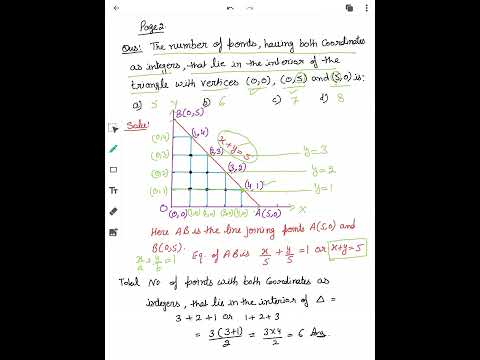 Page 2.
Ques: The number of points, having both Coordinates
as integers, that lie in the interior of the
triangle with vertices (0,0), (0,5) and (5,0) is:
a) 5 b) 6 c) 7 d) 8
Soln:
Y
B(0,5)
(0,4) (1,4) x+y=5
(0,3) (2,3) y=3
(0,2) (3,2) y=2
(0,1) (4,1) y=1
O (0,0) (1,0) (2,0) (3,0) (4,0) A(5,0) X
Here AB is the line joining points A(5,0) and
B(0,5). Eq. of AB is x/5 + y/5 = 1 or x+y=5
x/a + y/b = 1
Total No of points with both Coordinates as
integers, that lie in the interior of Δ =
3+2+1 or 1+2+3
= 3(3+1)/2 = 3×4/2 = 6 Ans.
TT